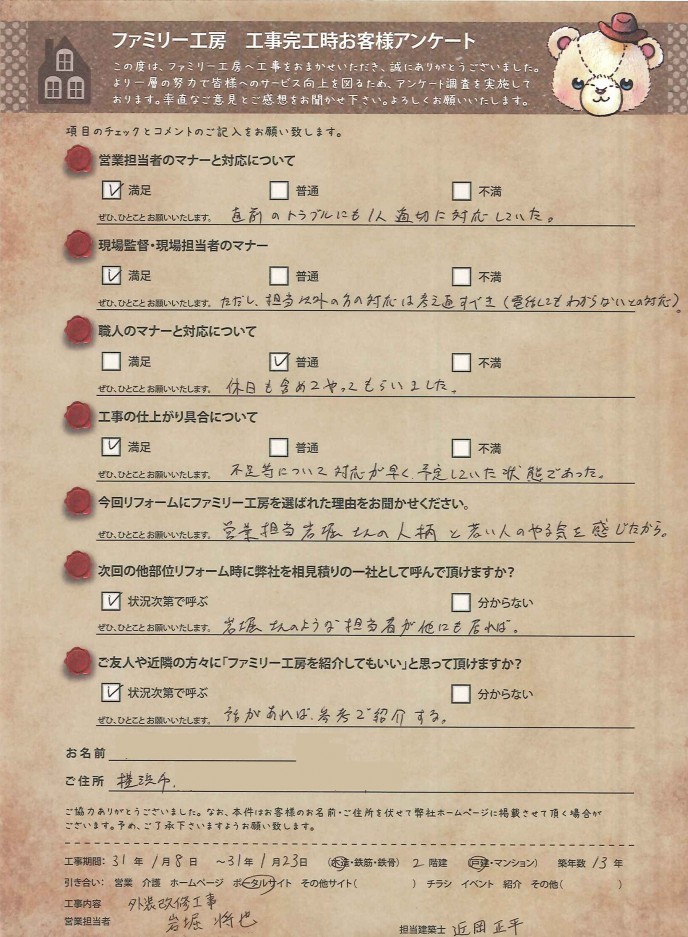 ファミリー工房 工事完工時お客様アンケート
この度は、ファミリー工房へ工事をおまかせいただき、誠にありがとうございました。
より一層の努力で皆様へのサービス向上を図るため、アンケート調査を実施して
おります。率直なご意見とご感想をお聞かせ下さい。よろしくお願いいたします。
項目のチェックとコメントのご記入をお願い致します。
営業担当者のマナーと対応について
満足 普通 不満
ぜひ、ひとこと お願いいたします。 直前のトラブルにも1人適切に対応していた。
現場監督・現場担当者のマナー
満足 普通 不満
ぜひ、ひとこと お願いいたします。 ただし、担当以外の方の対応は考え直すべき(電話してもわからないとの対応)。
職人のマナーと対応について
満足 普通 不満
ぜひ、ひとこと お願いいたします。 休日も含めてやってもらいました。
工事の仕上がり具合について
満足 普通 不満
ぜひ、ひとこと お願いいたします。 不足等について対応が早く、予定していた状態であった。
今回リフォームにファミリー工房を選ばれた理由をお聞かせください。
ぜひ、ひとこと お願いいたします。 営業担当岩堀さんの人柄と若い人のやる気を感じたから。
次回の他部位リフォーム時に弊社を相見積りの一社として呼んで頂けますか?
状況次第で呼ぶ 分からない
ぜひ、ひとこと お願いいたします。 岩堀さんのような担当者が他にも居れば。
ご友人や近隣の方々に「ファミリー工房を紹介してもいい」と思って頂けますか?
状況次第で呼ぶ 分からない
ぜひ、ひとこと お願いいたします。 話があれば、参考で紹介する。
お名前
ご住所 横浜市.
ご協力ありがとうございました。なお、本件はお客様のお名前・ご住所を伏せて弊社ホームページに掲載させて頂く場合が
ございます。予め、ご了承下さいますようお願い致します。
工事期間: 31年 1月8日 〜31年1月23日 (木造・鉄筋・鉄骨) 2階建 (戸建・マンション) 築年数13年
引き合い: 営業 介護 ホームページ ポータルサイト その他サイト( ) チラシ イベント 紹介 その他( )
工事内容 外装改修工事
営業担当者 岩堀 将也 担当建築士 近岡正平